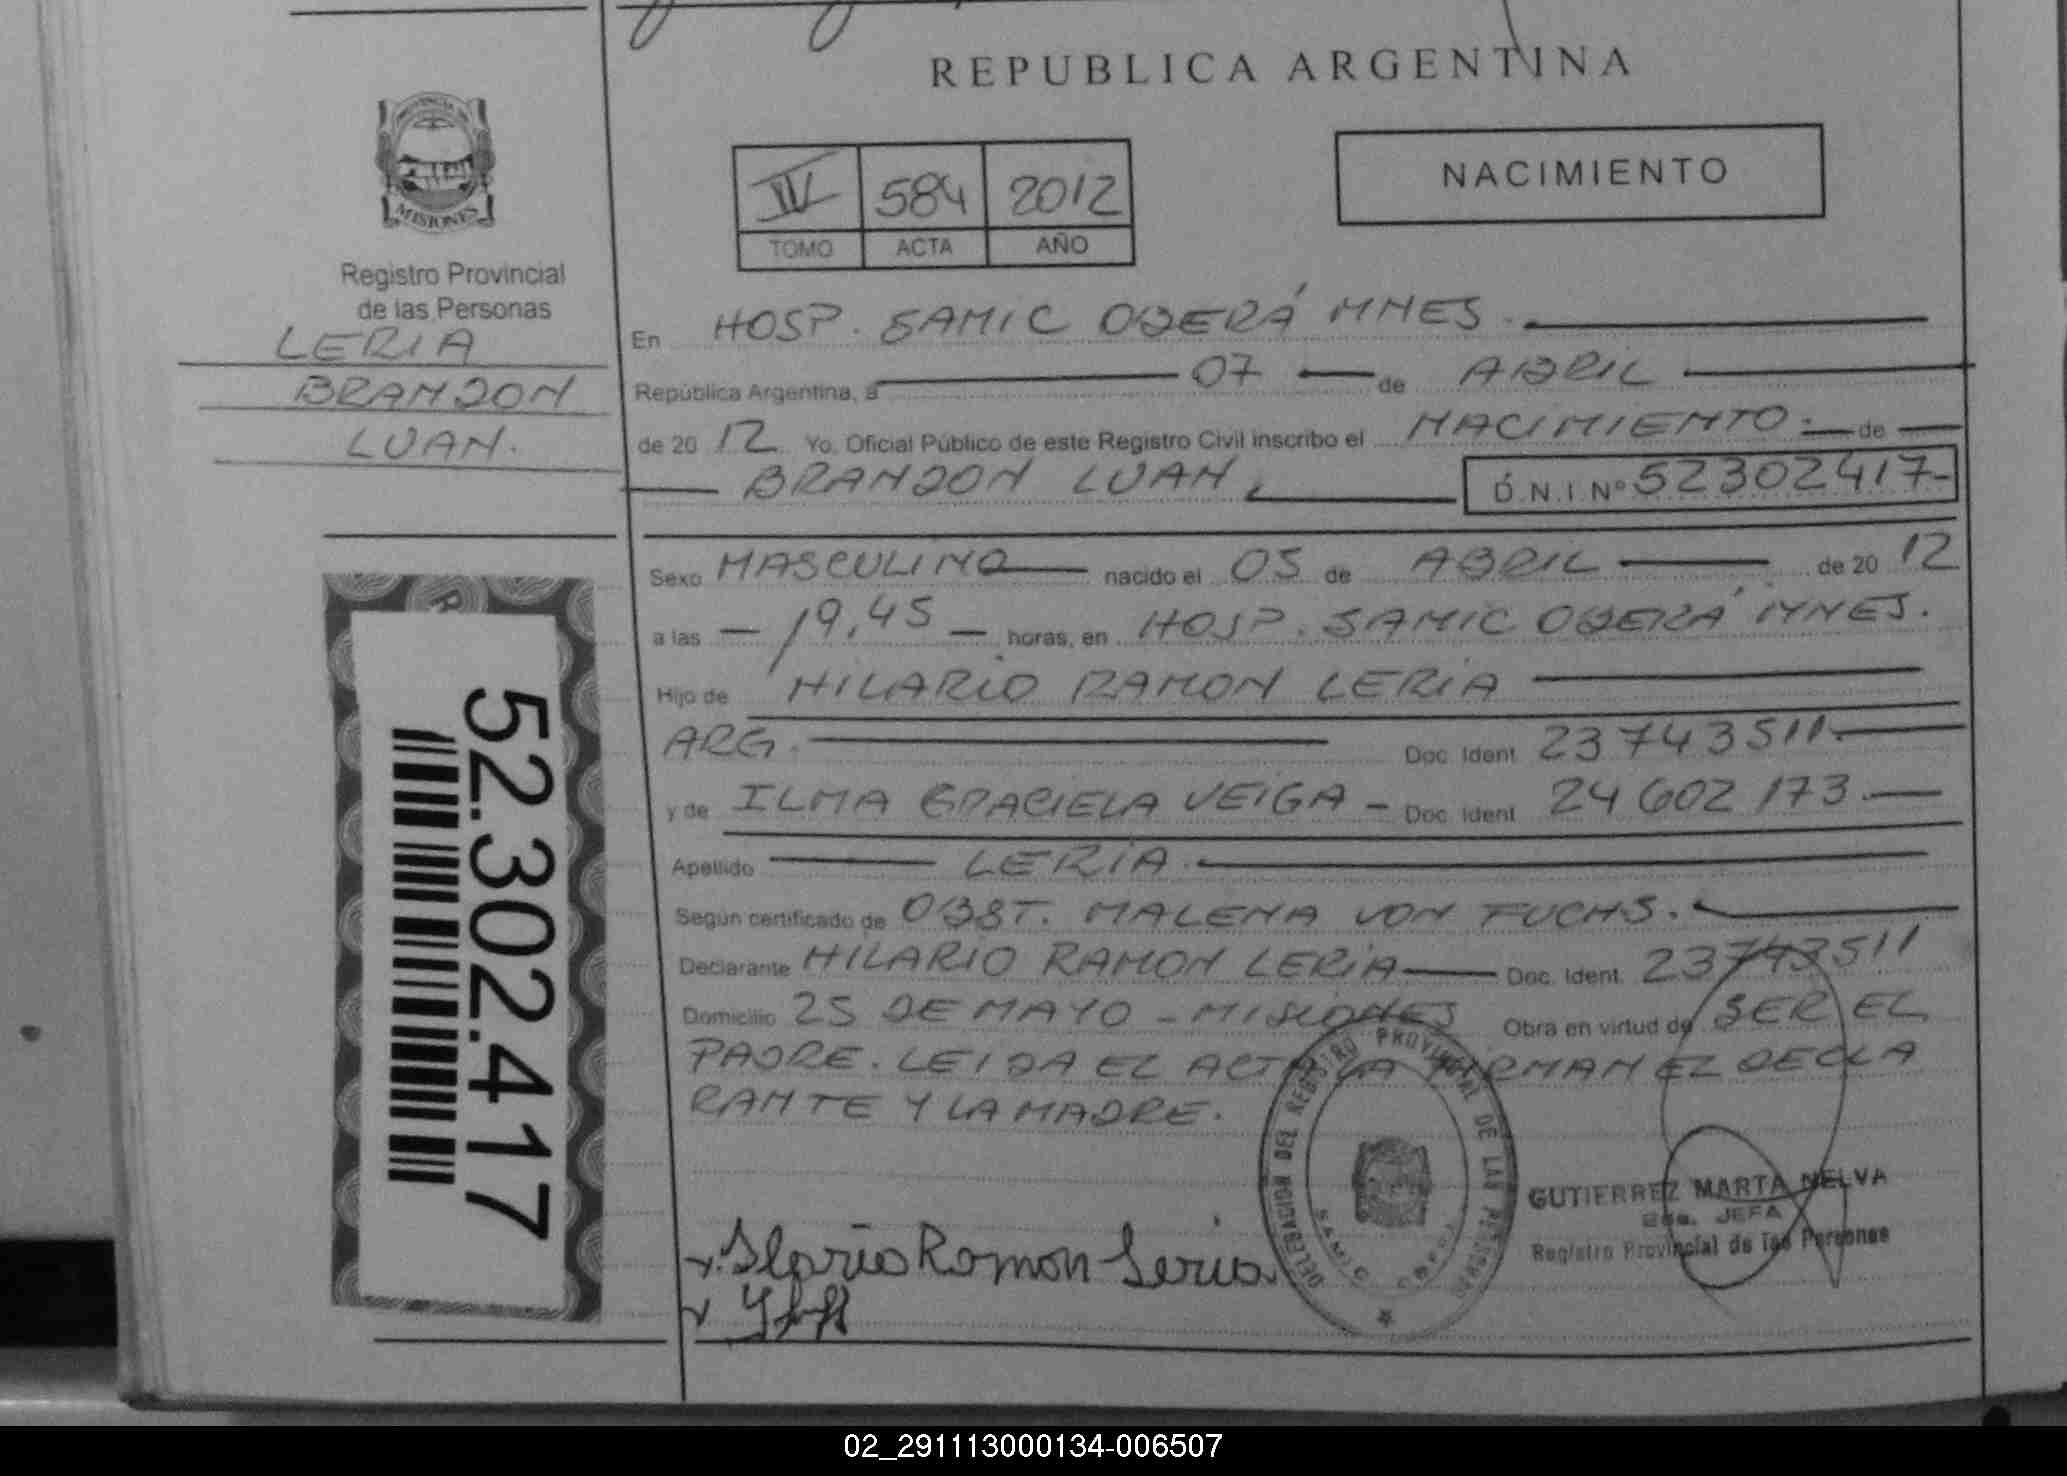 REPUBLICA ARGENTINA
PROVINCIA DE
MISIONES
Registro Provincial
de las Personas
LERIA
BRANDON
LUAN.
IV 584 2012
TOMO ACTA AÑO
NACIMIENTO
En HOSP. SAMIC OBERÁ MNES.
República Argentina, a 07 de ABRIL
de 20 12 Yo, Oficial Público de este Registro Civil inscribo el NACIMIENTO. de
BRANDON LUAN, D.N.I. Nº 52302417-
Sexo MASCULINO nacido el 05 de ABRIL de 20 12
a las - 19,45 - horas, en HOSP. SAMIC OBERÁ MNES.
Hijo de HILARIO RAMON LERIA
ARG. Doc. Ident. 23743511.
y de ILMA GRACIELA VEIGA - Doc. Ident. 24602173.
Apellido LERIA.
Según certificado de OBST. MALENA VON FUCHS.
Declarante HILARIO RAMON LERIA Doc. Ident. 23743511
Domicilio 25 DE MAYO - MISIONES Obra en virtud de SER EL
PADRE. LEIDA EL ACTA LA FIRMAN EL DECLA
RANTE Y LA MADRE.
52.302.417
DELEGACION DEL REGISTRO PROVINCIAL DE LAS PERSONAS
SAMIC OBERA
GUTIERREZ MARTA NELVA
JEFA
Registro Provincial de las Personas
Ilario Ramon Leria
02_291113000134-006507